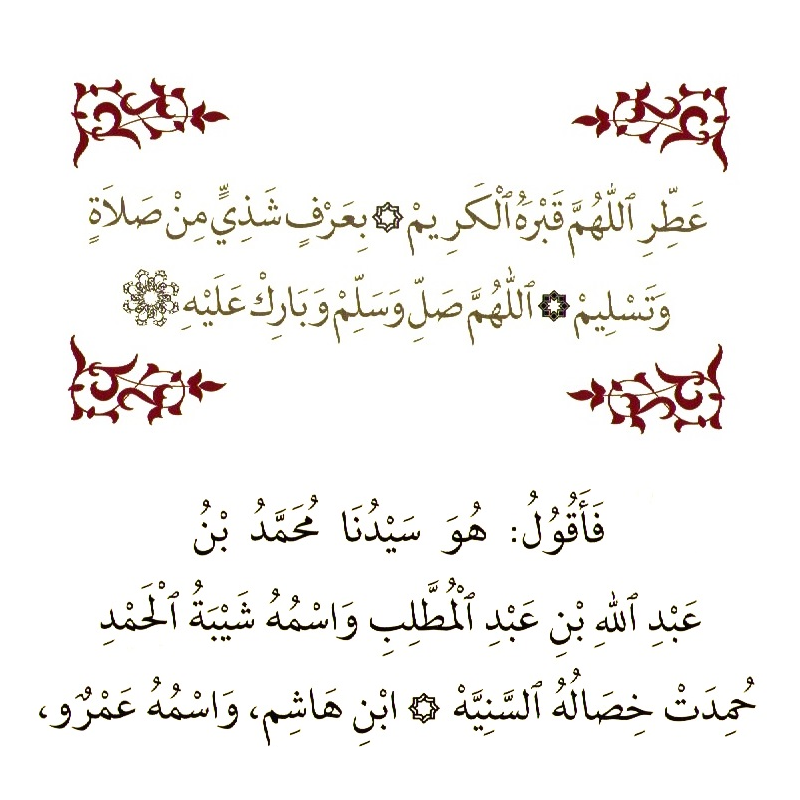 عَطِّرِ ٱللّٰهُمَّ قَبْرَهُ ٱلْكَرِيمْ ۞ بِعَرْفٍ شَذِيٍّ مِنْ صَلَاةٍ
وَتَسْلِيمْ ۞ ٱللّٰهُمَّ صَلِّ وَسَلِّمْ وَبَارِكْ عَلَيْهِ
فَأَقُولُ: هُوَ سَيْدُنَا مُحَمَّدُ بْنُ
عَبْدِ ٱللّٰهِ بْنِ عَبْدِ ٱلْمُطَّلِبِ وَاسْمُهُ شَيْبَةُ ٱلْحَمْدِ
حُمِدَتْ خِصَالُهُ ٱلسَّنِيَّهْ ۞ ابْنِ هَاشِمٍ، وَاسْمُهُ عَمْرٌو،